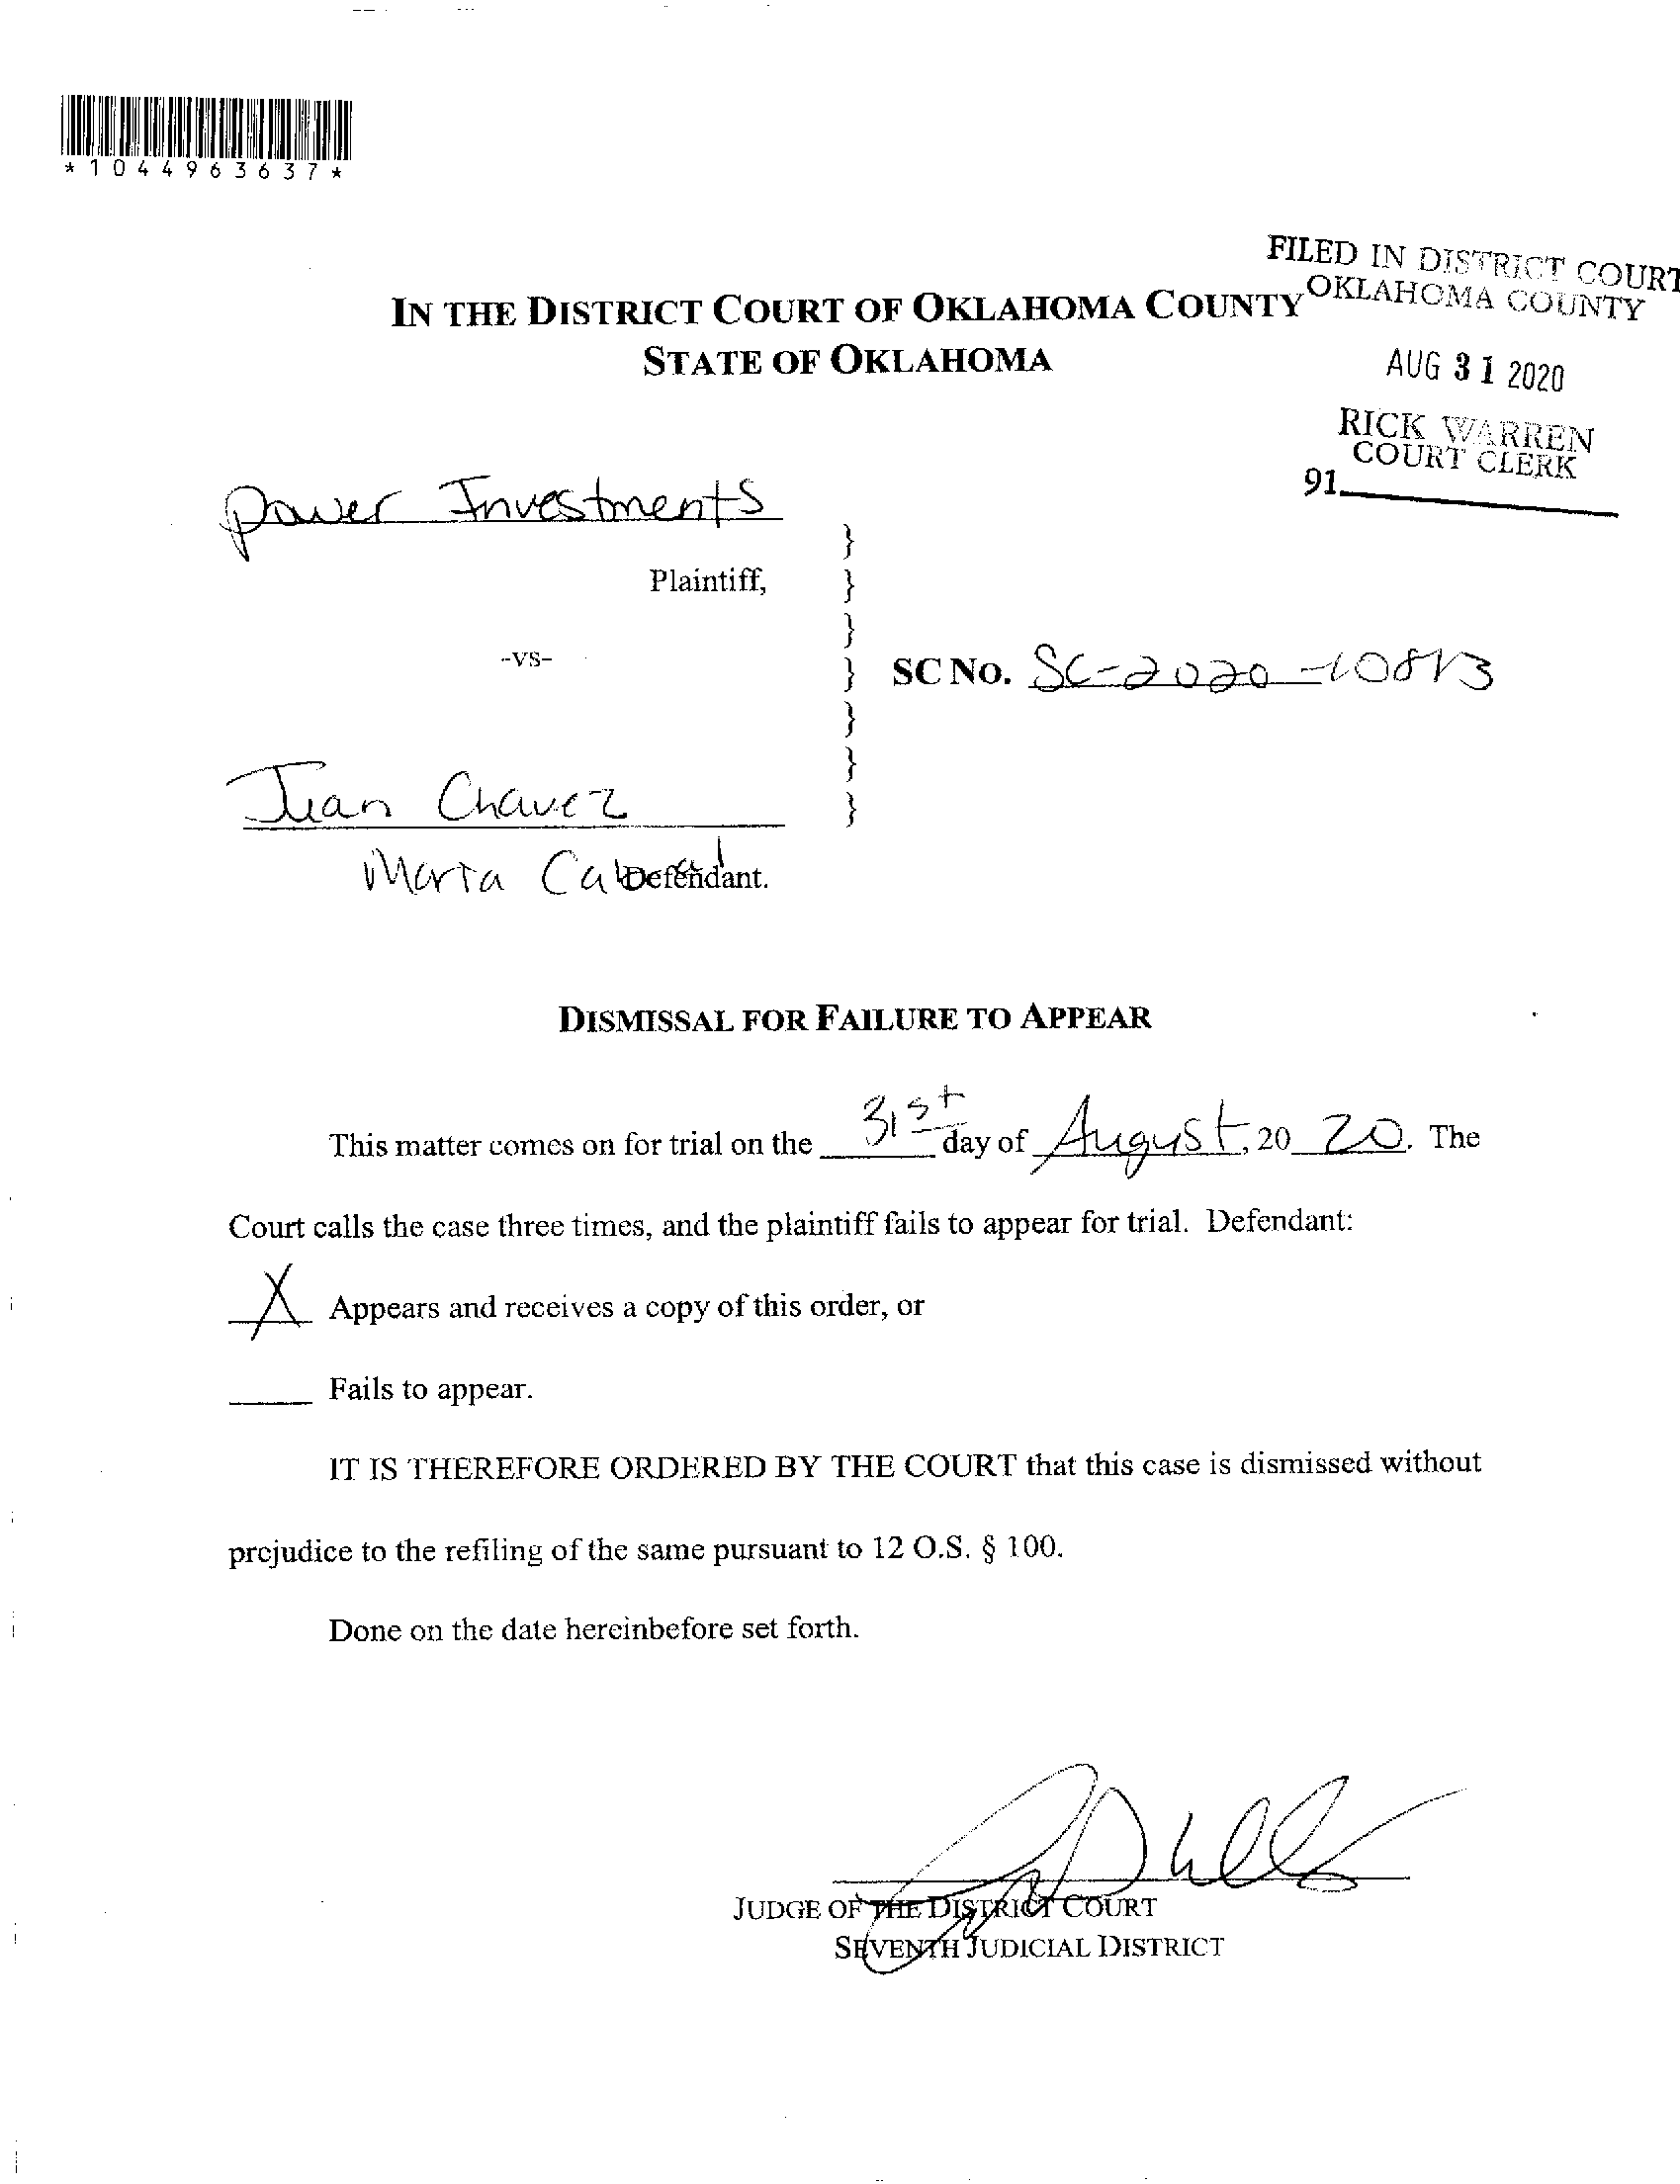 *1044963637*
FILED IN DISTRICT COURT
OKLAHOMA COUNTY
IN THE DISTRICT COURT OF OKLAHOMA COUNTY
STATE OF OKLAHOMA
AUG 31 2020
RICK WARREN
COURT CLERK
91
Power Investments
}
Plaintiff, }
}
-vs-
} SC NO. SC-2020-10813
}
}
Juan Chavez }
Maria
Defendant.
DISMISSAL FOR FAILURE TO APPEAR
This matter comes on for trial on the 31st day of August, 20 20. The
Court calls the case three times, and the plaintiff fails to appear for trial. Defendant:
X Appears and receives a copy of this order, or
Fails to appear.
IT IS THEREFORE ORDERED BY THE COURT that this case is dismissed without
prejudice to the refiling of the same pursuant to 12 O.S. § 100.
Done on the date hereinbefore set forth.
JUDGE OF THE DISTRICT COURT
SEVENTH JUDICIAL DISTRICT